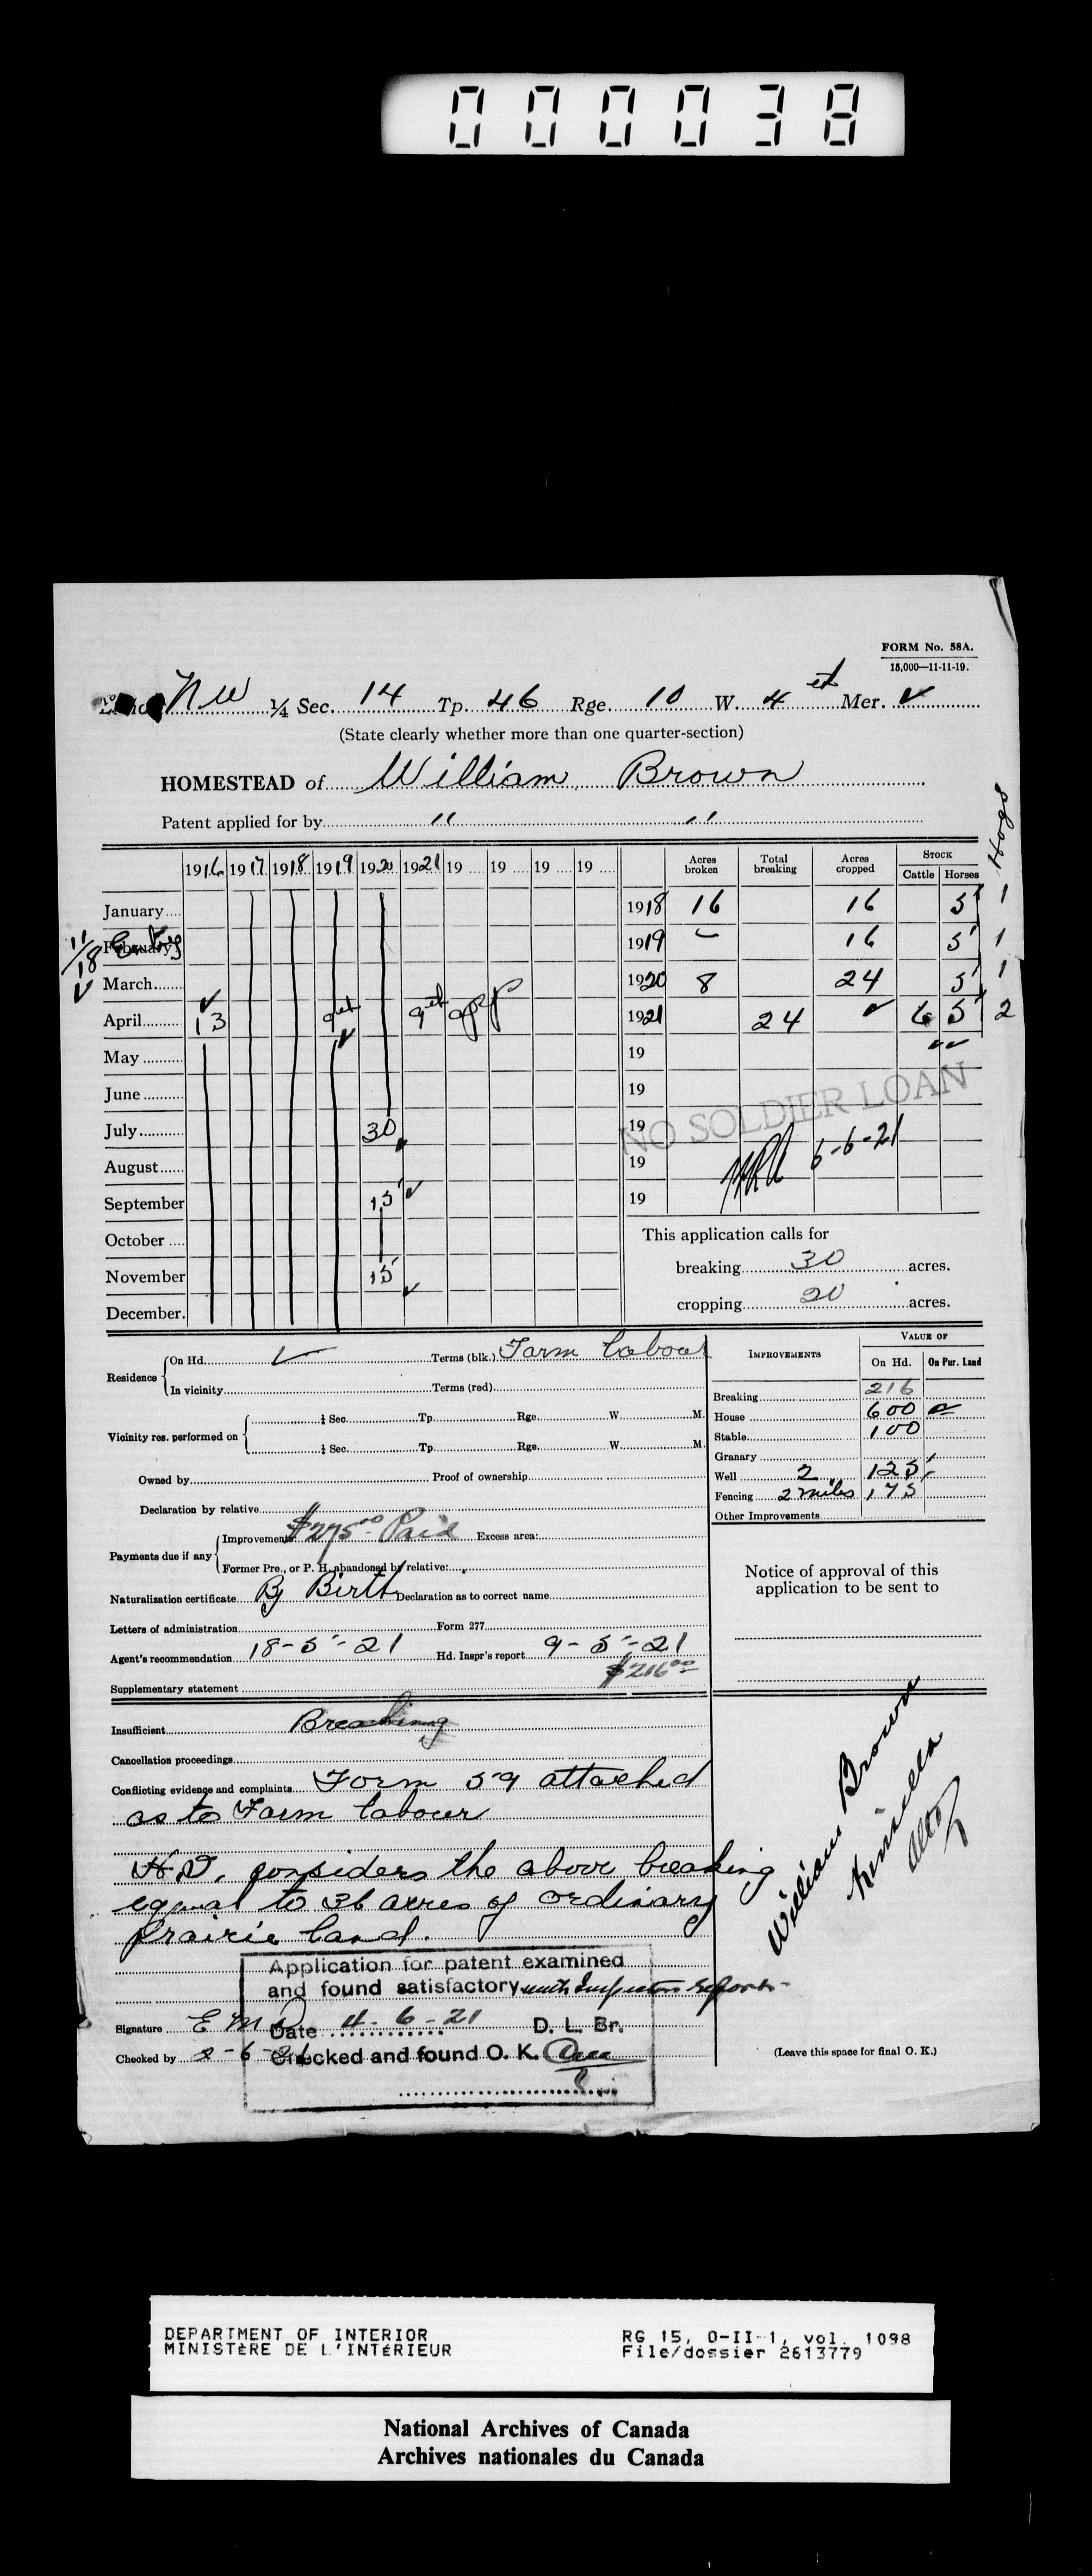 000038
FORM No. 58A.
15,000—11-11-19.
N W ¼ Sec. 14 Tp. 46 Rge. 10 W. 4 Mer. ✓
(State clearly whether more than one quarter-section)
HOMESTEAD of William Brown
Patent applied for by " "
1916 1917 1918 1919 1920 1921 19 19 19 19
Acres broken Total breaking Acres cropped STOCK Cattle Horses Hogs
January 1918 16 16 5 1
11/18 Entry February 1919 16 5 1
March 1920 8 24 5 1
✓ April 13 ✓ 9 ✓ 9 app 1921 24 ✓ 6 5 2
May 19 ✓✓
June 19
NO SOLDIER LOAN
July 30 19
August 19 6-6-21
September 15 ✓ 19
October
November 15 ✓
December.
This application calls for
breaking 30 acres.
cropping 20 acres.
Residence On Hd. ✓ Terms (blk.) Farm Labour
In vicinity Terms (red)
Vicinity res. performed on ¼ Sec. Tp. Rge. W. M.
¼ Sec. Tp. Rge. W. M.
Owned by Proof of ownership
Declaration by relative
Payments due if any Improvements $275.00 Paid Excess area:
Former Pre., or P. H. abandoned by relative:
Naturalization certificate By Birth Declaration as to correct name
Letters of administration Form 277
Agent's recommendation 18-5-21 Hd. Inspr's report 9-5-21
Supplementary statement $216.00
IMPROVEMENTS VALUE OF
On Hd. On Pur. Land
Breaking 216
House 600
Stable 100
Granary
Well 2 125
Fencing 2 miles 175
Other Improvements
Notice of approval of this
application to be sent to
Insufficient Breaking
Cancellation proceedings
Conflicting evidence and complaints Form 59 attached
as to Farm labour
H.I. considers the above breaking
equal to 36 acres of ordinary
prairie land.
Application for patent examined
and found satisfactory with Inspectors report
Signature E M Date 4-6-21 D. L. Br.
Checked by 2-6-21 Checked and found O. K.
William Brown
Kinsella
Alta
(Leave this space for final O. K.)
DEPARTMENT OF INTERIOR
MINISTÈRE DE L'INTÉRIEUR
RG 15, D-II-1, vol. 1098
File/dossier 2613779
National Archives of Canada
Archives nationales du Canada